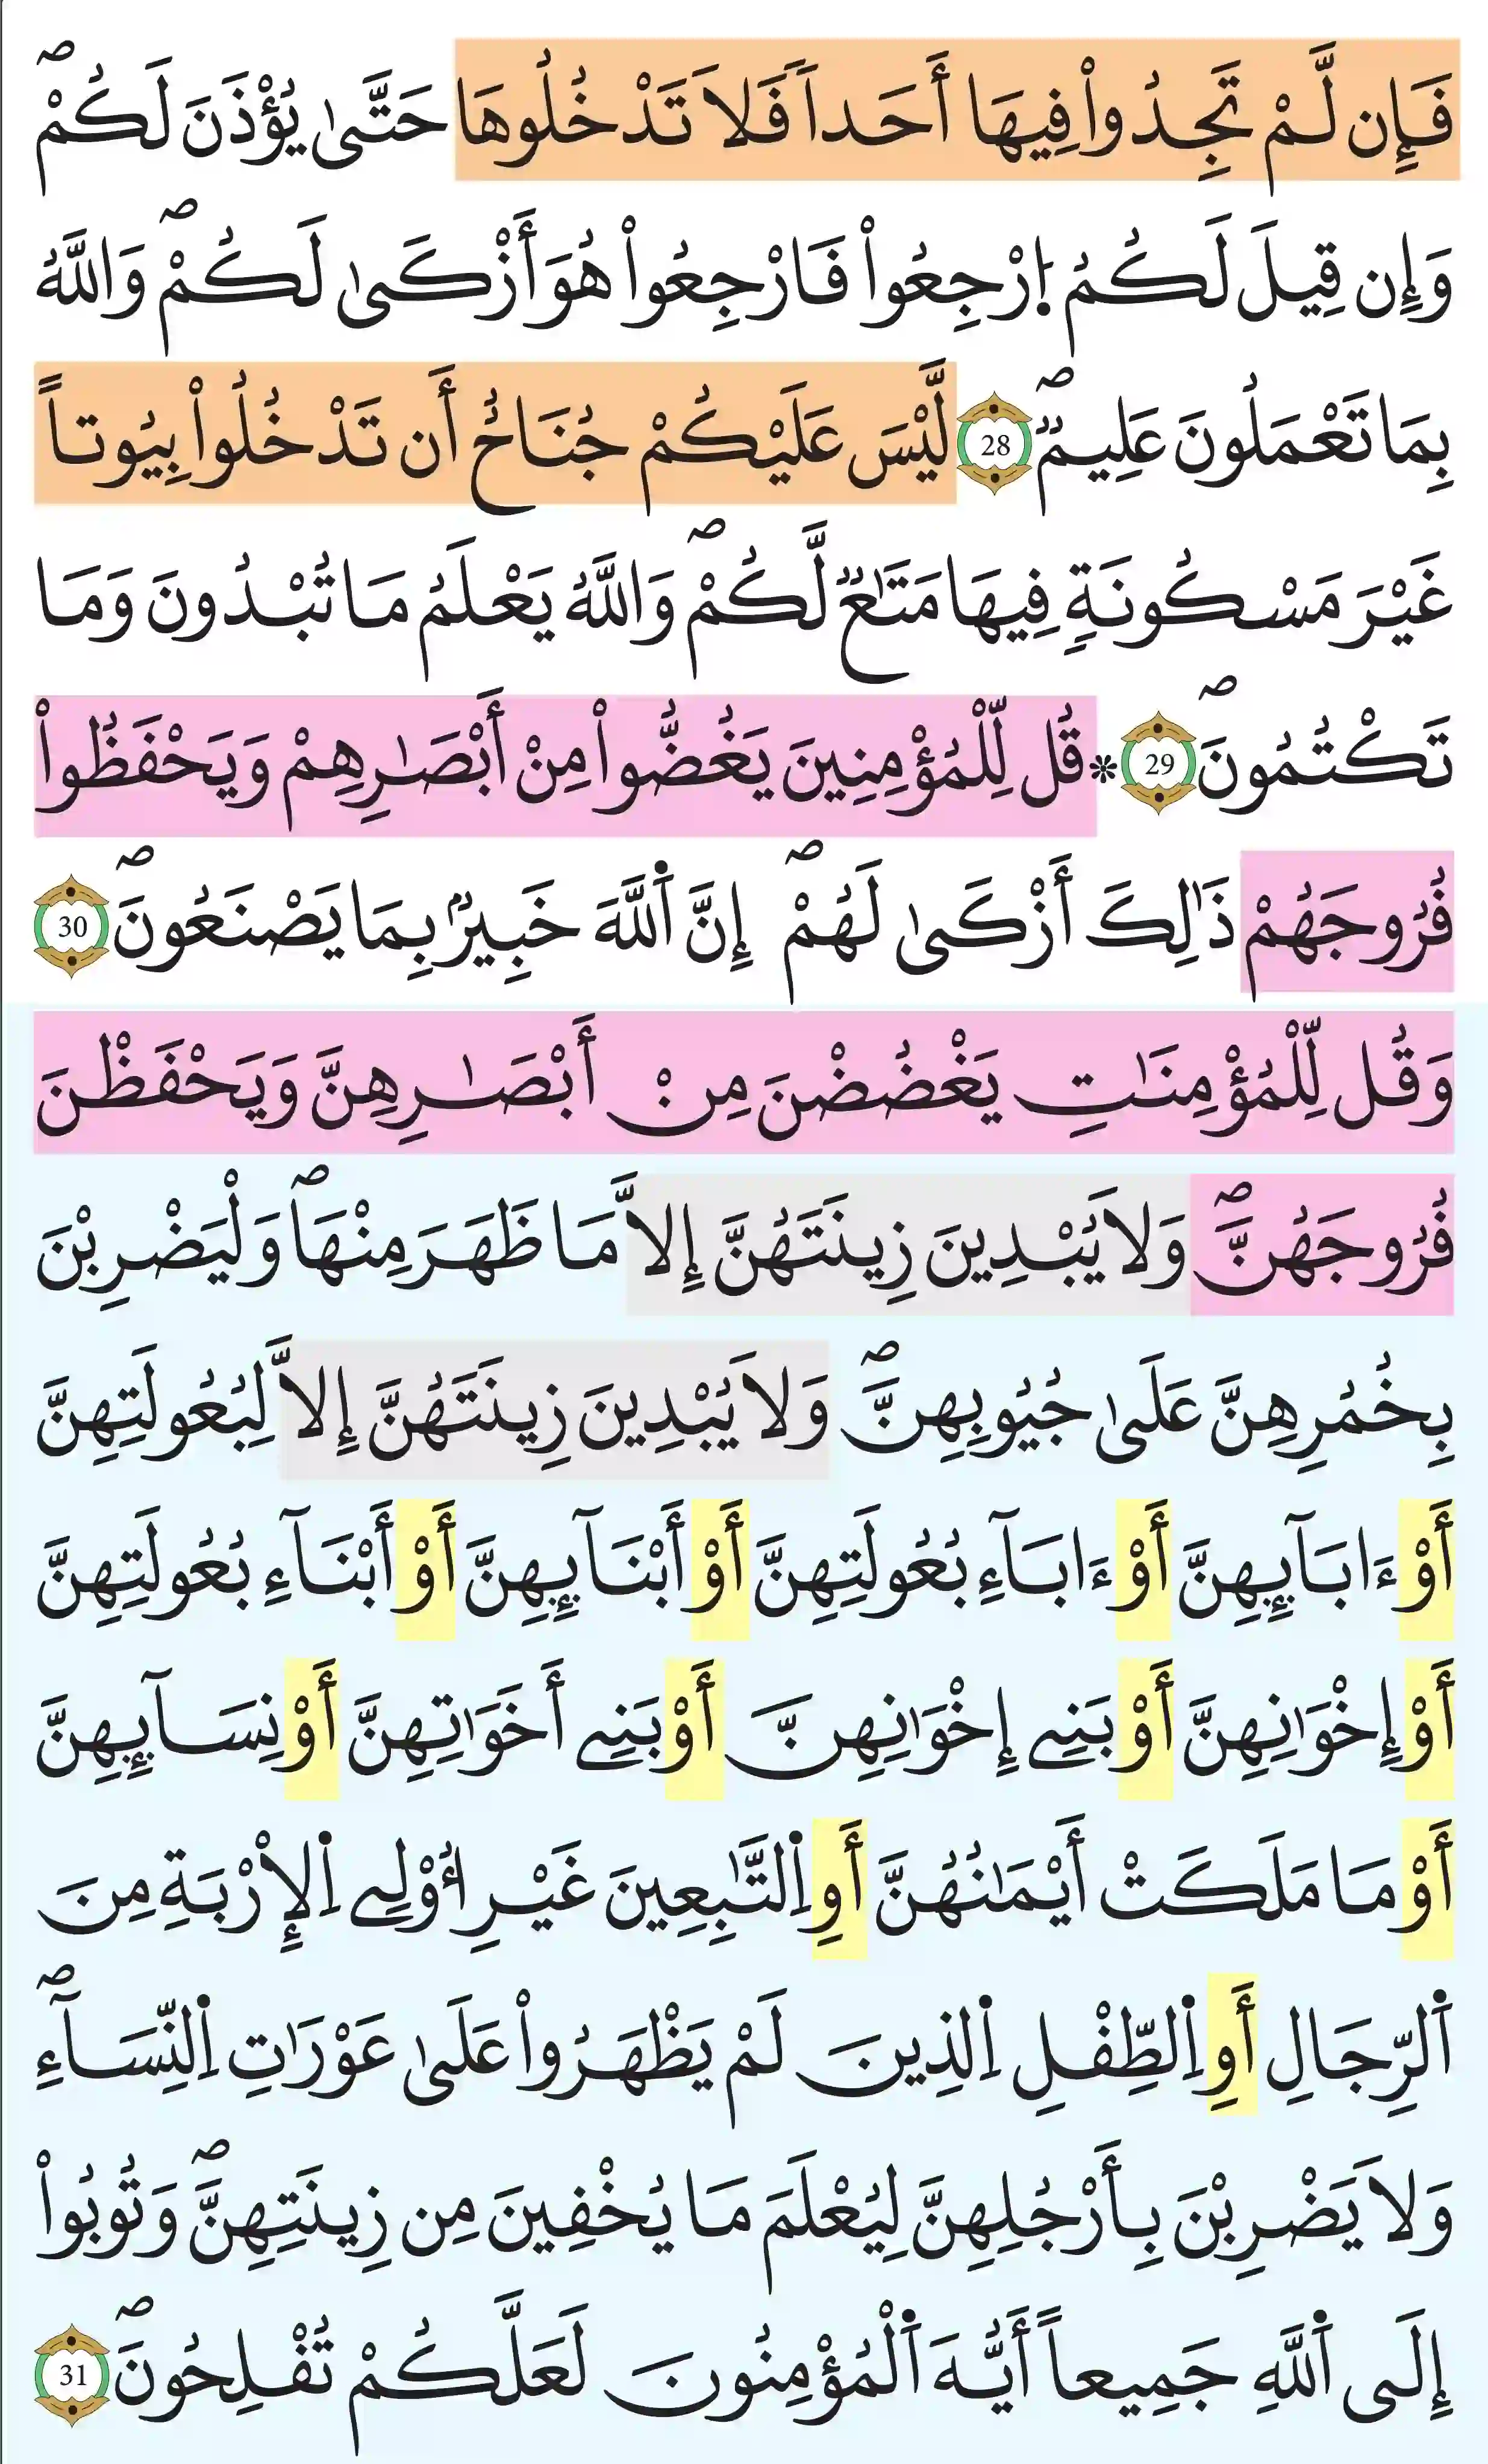 فَإِن لَّمْ تَجِدُواْ فِيهَا أَحَداٗ فَلَا تَدْخُلُوهَا حَتَّىٰ يُؤْذَنَ لَكُمْۖ
وَإِن قِيلَ لَكُمُ اُ۪رْجِعُواْ فَارْجِعُواْ هُوَ أَزْكَىٰ لَكُمْۖ وَاللَّهُ
بِمَا تَعْمَلُونَ عَلِيمٞۖ 28 لَّيْسَ عَلَيْكُمْ جُنَاحٌ أَن تَدْخُلُواْ بِيُوتاً
غَيْرَ مَسْكُونَةٖ فِيهَا مَتَٰعٞ لَّكُمْۖ وَاللَّهُ يَعْلَمُ مَا تُبْدُونَ وَمَا
تَكْتُمُونَۖ 29 * قُل لِّلْمُؤْمِنِينَ يَغُضُّواْ مِنْ أَبْصَٰرِهِمْ وَيَحْفَظُواْ
فُرُوجَهُمْ ذَٰلِكَ أَزْكَىٰ لَهُمْۖ إِنَّ اَ۬للَّهَ خَبِيرُۢ بِمَا يَصْنَعُونَۖ 30
وَقُل لِّلْمُؤْمِنَٰتِ يَغْضُضْنَ مِنْ أَبْصَٰرِهِنَّ وَيَحْفَظْنَ
فُرُوجَهُنَّۖ وَلَا يُبْدِينَ زِينَتَهُنَّ إِلَّا مَا ظَهَرَ مِنْهَاۖ وَلْيَضْرِبْنَ
بِخُمُرِهِنَّ عَلَىٰ جُيُوبِهِنَّۖ وَلَا يُبْدِينَ زِينَتَهُنَّ إِلَّا لِبُعُولَتِهِنَّ
أَوْ ءَابَآئِهِنَّ أَوْ ءَابَآءِ بُعُولَتِهِنَّ أَوْ أَبْنَآئِهِنَّ أَوْ أَبْنَآءِ بُعُولَتِهِنَّ
أَوْ إِخْوَٰنِهِنَّ أَوْ بَنِے إِخْوَٰنِهِنَّ أَوْ بَنِے أَخَوَٰتِهِنَّ أَوْ نِسَآئِهِنَّ
أَوْ مَا مَلَكَتْ أَيْمَٰنُهُنَّ أَوِ اِ۬لتَّٰبِعِينَ غَيْرِ أُوْلِے اِ۬لْإِرْبَةِ مِنَ
اَ۬لرِّجَالِ أَوِ اِ۬لطِّفْلِ اِ۬لذِينَ لَمْ يَظْهَرُواْ عَلَىٰ عَوْرَٰتِ اِ۬لنِّسَآءِۖ
وَلَا يَضْرِبْنَ بِأَرْجُلِهِنَّ لِيُعْلَمَ مَا يُخْفِينَ مِن زِينَتِهِنَّۖ وَتُوبُواْ
إِلَى اَ۬للَّهِ جَمِيعاً أَيُّهَ اَ۬لْمُؤْمِنُونَ لَعَلَّكُمْ تُفْلِحُونَۖ 31